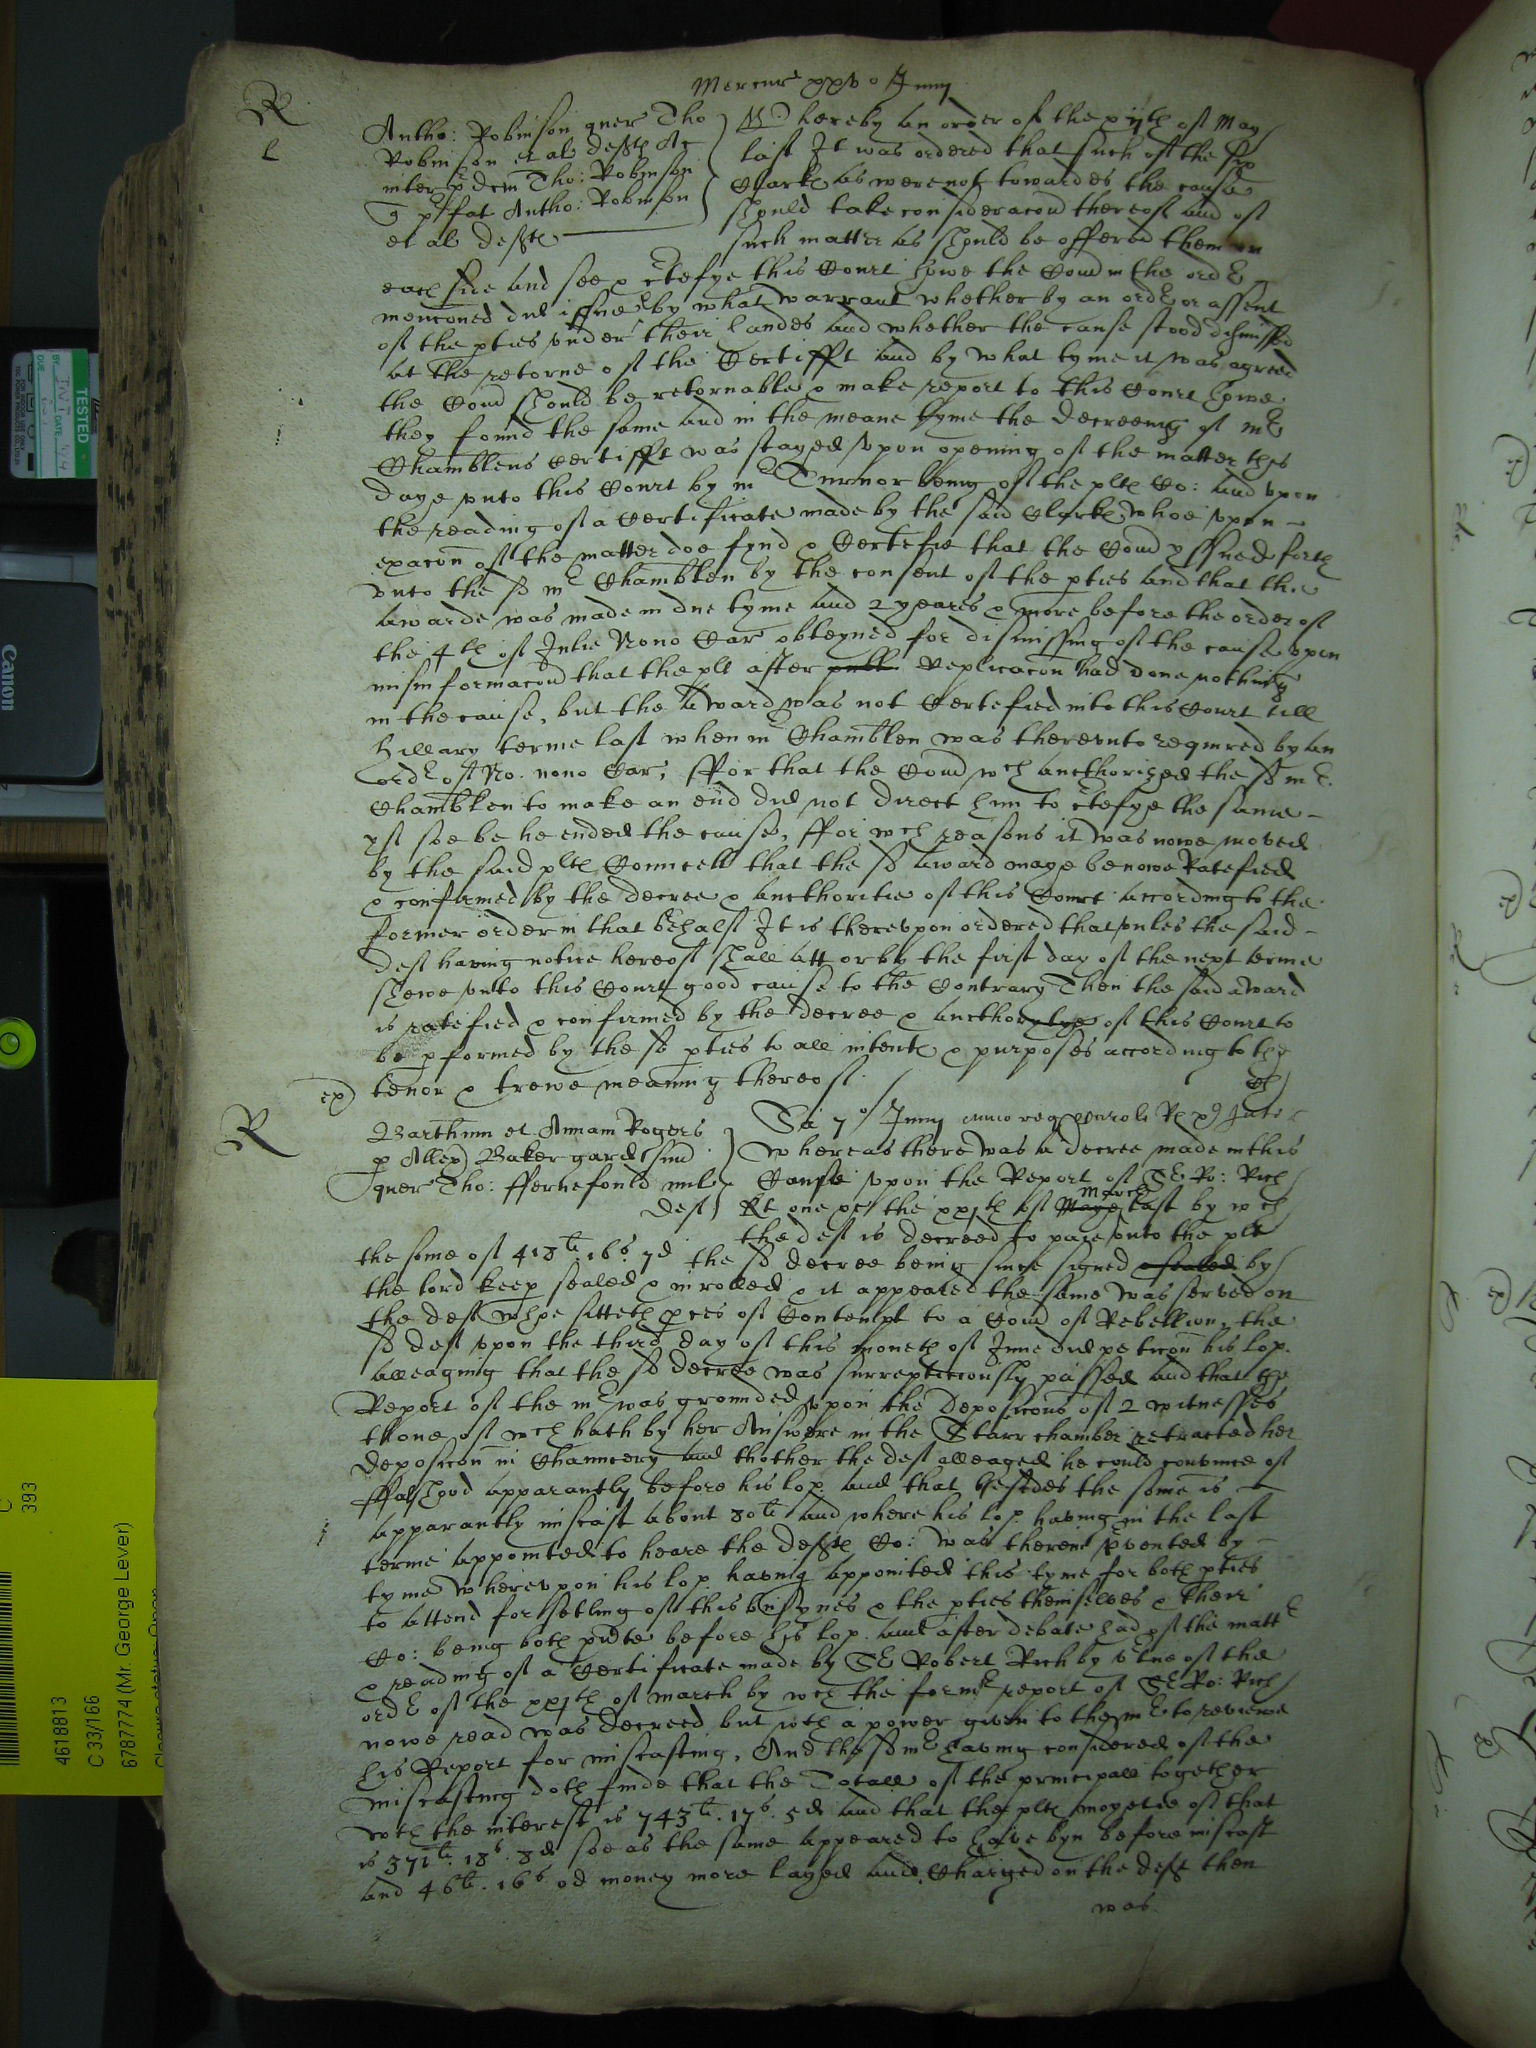 Mercur xxv o Junij
R
l
Antho: Robinson quer Tho
Robinson et al deftes Ac
inter eundem Tho: Robinson
q pfat Antho: Robinson
et al deftes
Whereby an order of the xijth of May
last It was ordered that such of the six
Clarkes as were not towardes the cause
should take consideracon thereof and of
such matter as should be offered them on
each side and soe certefye this Court howe the Comn in the order
menconed did issue by what warrant whether by an order or assent
of the pties under their handes and whether the cause stood dismissed
at the retorne of the Certifft and by what tyme it was agreed
the Comn should be retornable & make report to this Court howe
they found the same and in the meane tyme the decreeing of mr
Chamblens Certifft was stayed Upon opening of the matter this
daye unto this Court by mr Turnor being of the plts Co: and upon
the reading of a Certificate made by the said Clarkes whoe upon
exacon of the matter doe fynd & Certefie that the Comn yssued forth
unto the sd mr Chamblen by the consent of the pties and that the
awarde was made in due tyme and 2 yeares & more before the order of
the 4th of Julie Nono Car obteyned for dismissing of the cause upon
misinformacon that the plt after publ Replicacon had done nothing
in the cause, but the award was not Certefied into this Court till
hillary terme last when mr Chamblen was thereunto required by an
order of No. nono Car, ffor that the Comn wch aucthorized the sd mr
Chamblen to make an end did not direct him to certefye the same
yf soe be he ended the cause, ffor wch reasons it was nowe moved
by the said plts Councell that the sd award maye be nowe Ratefied
& confirmed by the decree & aucthoritie of this Court according to the
former order in that behalf It is thereupon ordered that unles the said
deft having notice hereof shall att or by the first day of the next terme
shewe unto this Court good cause to the Contrary Then the said award
is ratefied & confirmed by the decree & aucthorytye of this Court to
be pformed by the sd pties to all intents & purposes according to the
tenor & trewe meaning thereof.
ex
R
Barthum et Annam Rogers
p Allex Baker gard suu
quer Tho: ffernefould mil
deft
Sa 7 o Junij anno reg Caroli R
Whereas there was a decree made in this
Cause upon the Report of Sr Ro: Rich
Kt one of the xxjth of Maye March last by wch
the deft is decreed to paie unto the plt
the some of 418li. 16s. 7d the sd decree being since signed & sealed by
the lord keep sealed & inrolled & it appeared the same was served on
the deft whoe sitteth pces of Contempt to a Comn of Rebellion, the
sd deft upon the third day of this moneth of June did peticon his lop.
alleaging that the sd decree was surreptitiously passed and that the
Report of the mr was grounded upon the deposicons of 2 witnesses
thone of wch hath by her Answere in the Starr chamber retracted her
deposicon in Chauncery and thother the deft alleaged he could convince of
ffalshood apparantly before his lop. and that besides the some is
apparantly miscast about 80li and where his lop. having in the last
terme appointed to heare the defts Co: was therein pvented by
tyme whereupon his lop having appointed this tyme for both pties
to attend for setling of this busynes & the pties themselves & their
Co: being both pnte before his lop. and after debate had of the mattr
& reading of a Certificate made by Sr Robert Rich by vtue of the
order of the xxjth of march by wch the former report of Sr Ro: Rich
nowe read was decreed but wth a power given to the mr to reviewe
his Report for miscasting, And the sd mr having considered of the
miscasting doth finde that the Totall of the principall together
wth the interest is 743li. 17s. 5d and that the plts moyetie of that
is 371li. 18s. 8d soe as the same appeared to have byn before miscast
and 46li. 16s od money more layed and Charged on the deft then
was
TESTED
INIT
DATE
Canon
C
393
4618813
C 33/166
6787774 (Mr. George Lever)